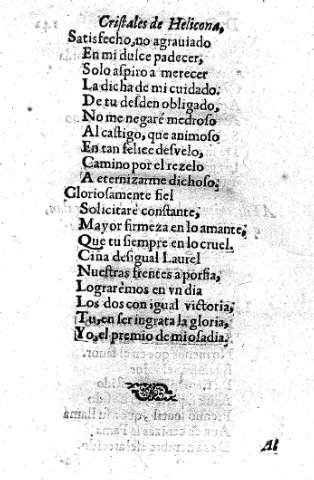 Cristales de Helicona,
Satisfecho, no agrauiado
En mi dulce padecer,
Solo aspiro a merecer
La dicha de mi cuidado.
De tu desden obligado,
No me negaré medroso
Al castigo, que animoso
En tan felice desvelo,
Camino por el rezelo
A eternizarme dichoso;
Gloriosamente fiel
Solicitaré constante,
Mayor firmeza en lo amante,
Que tu siempre en lo cruel.
Ciña desigual Laurel
Nuestras frentes a porfia,
Lograrémos en vn dia
Los dos con igual victoria,
Tu, en ser ingrata la gloria,
Yo, el premio de mi osadia.
Al